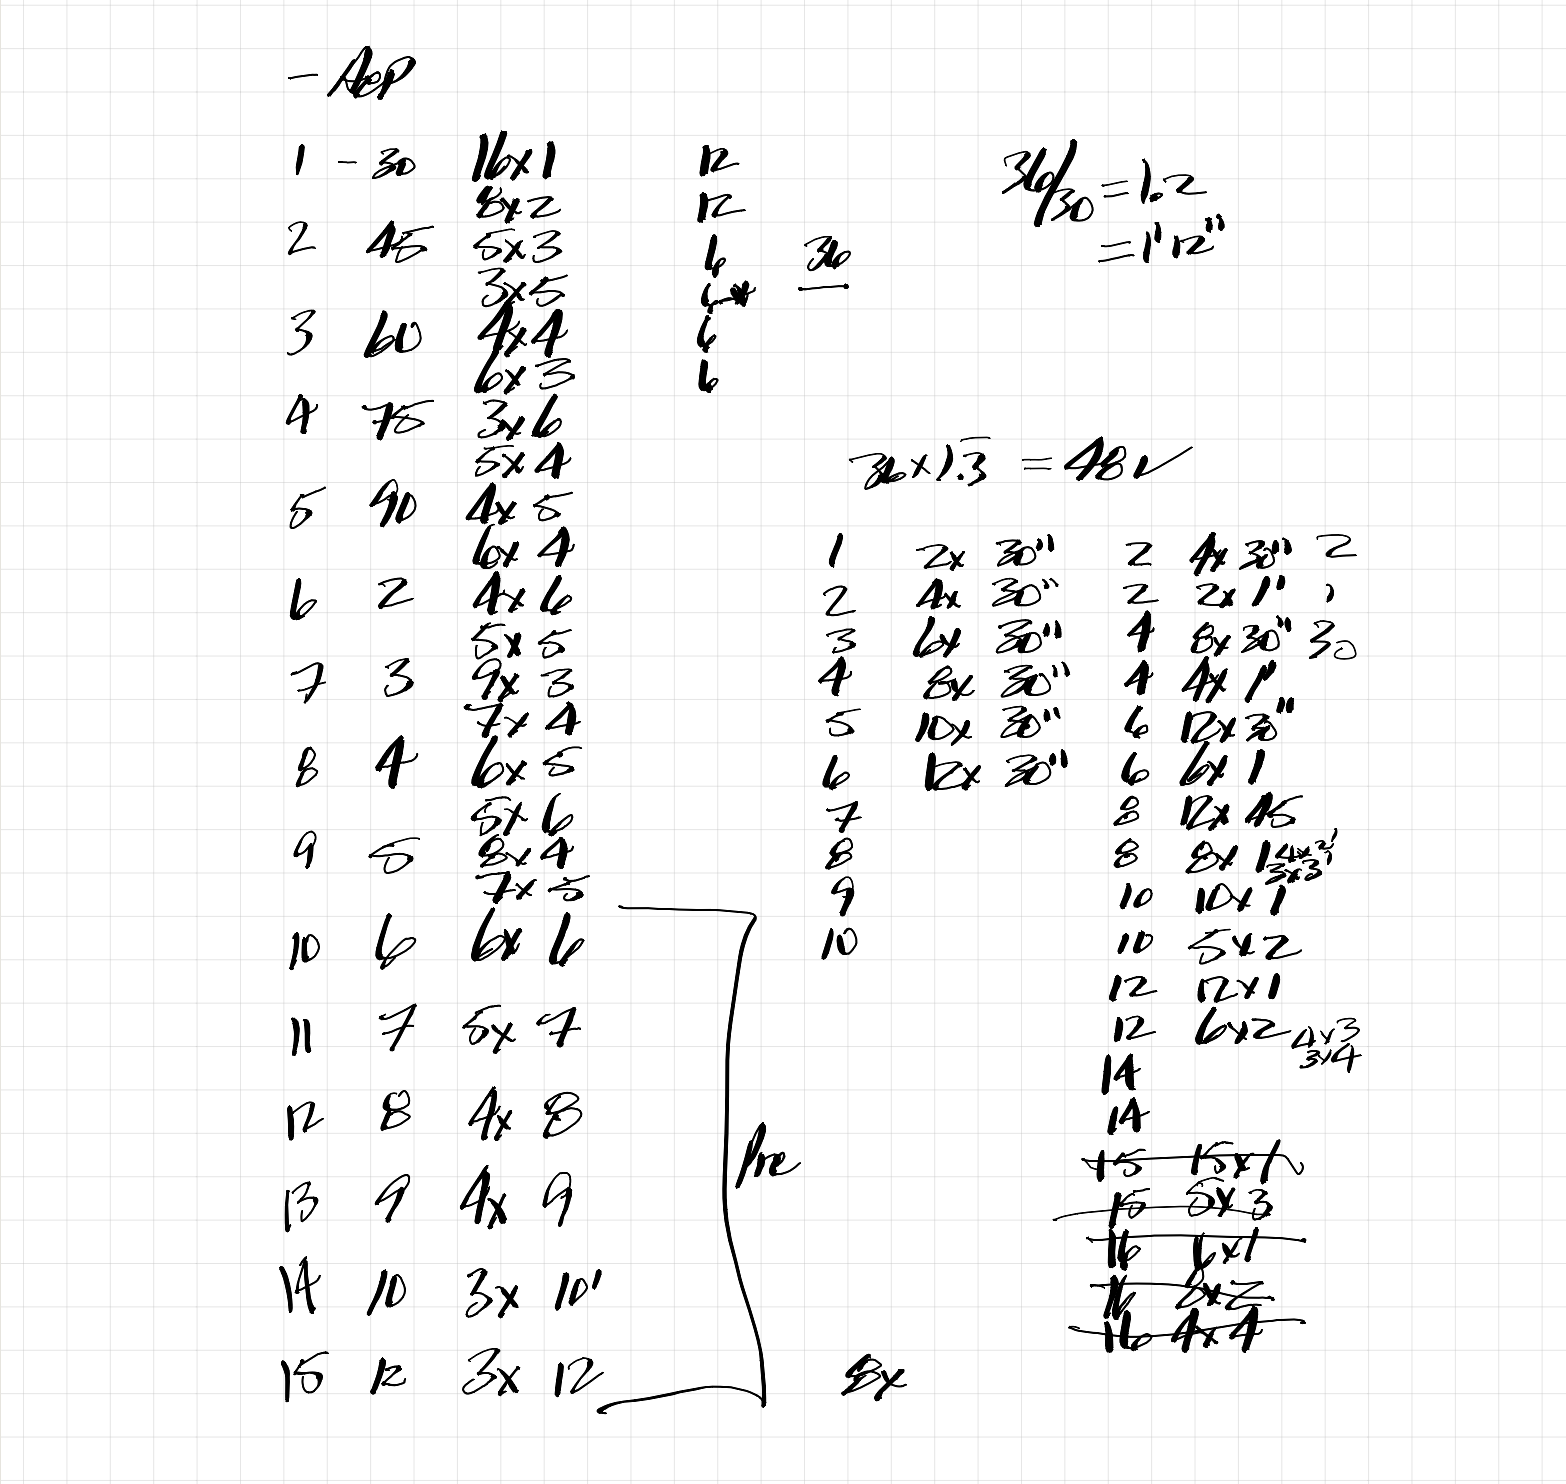 - AeP
1 - 30 16x1 12 36/30 = 1.2
8x2 12
2 45 5x3 6 36 = 1'12"
3x5 6*
3 60 4x4 6
6x3 6
4 75 3x6
5x4 36 x 1.3 = 48 ✓
5 90 4x 5
6x 4 1 2x 30" 2 4x 30" 2
6 2 4x 6 2 4x 30" 2 2x 1' 1
5x 5 3 6x 30" 4 8x 30" 30
7 3 9x 3 4 8x 30" 4 4x 1'
7x 4 5 10x 30" 6 12x 30"
8 4 6x 5 6 12x 30" 6 6x 1
5x 6 7 8 12x 45
9 5 8x 4 8 8 8x 1 4x2' 3x3'
7x 5 9 10 10x 1
10 6 6x 6 10 10 5x2
12 12x1
11 7 5x 7 12 6x2 4x3 3x4
14
12 8 4x 8 14
Pre 15 15x1
13 9 4x 9 15 5x3
16 16x1
14 10 3x 10' 16 8x2
16 4x 4
15 12 3x 12 8x